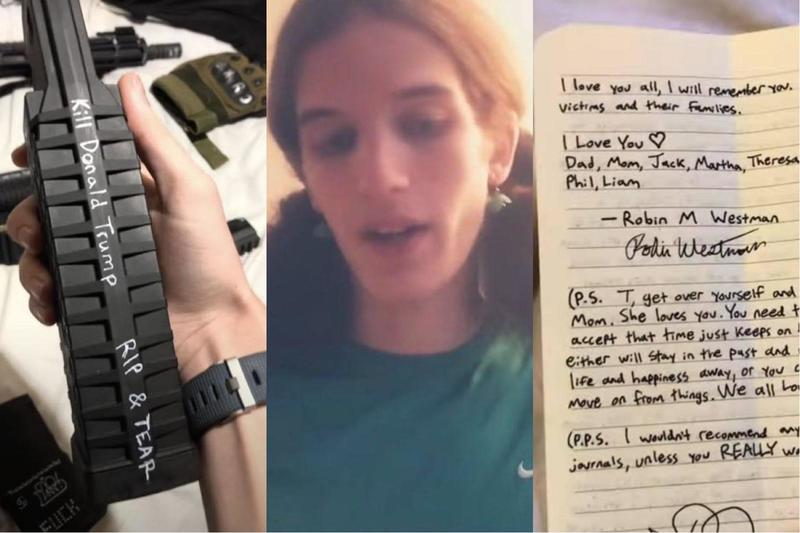 Kill Donald Trump
RIP & TEAR
FUCK
I love you all, I will remember you.
victims and their families.
I Love You ♡
Dad, Mom, Jack, Martha, Theresa
Phil, Liam
— Robin M Westman
Robin Westman
(P.S. T, get over yourself and
Mom. She loves you. You need t
accept that time just keeps on
either will stay in the past and
life and happiness away, or you c
move on from things. We all Lo
(P.P.S. I wouldn't recommend any
journals, unless you REALLY w